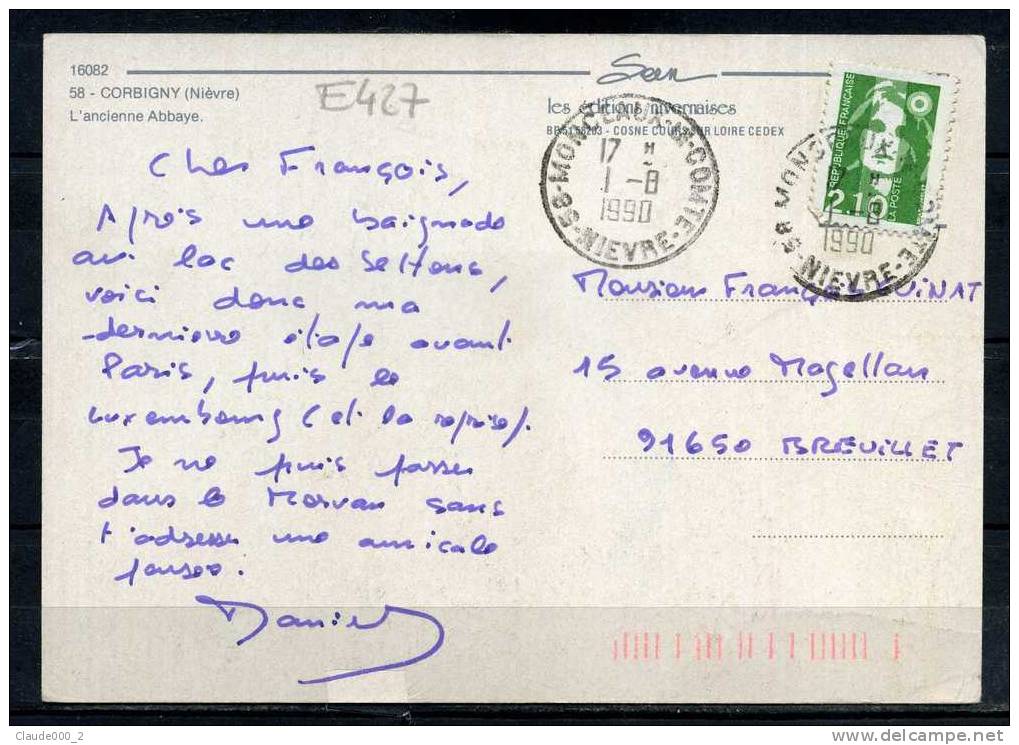 16082
58 - CORBIGNY (Nièvre)
L'ancienne Abbaye.
E427
les éditions nivernaises
58203 - COSNE COURS SUR LOIRE CEDEX
Cher François,
Après une baignade
au lac des Settons,
voici donc ma
dernière étape avant
Paris, puis le
Luxembourg (et la reprise).
Je ne puis passer
dans le Morvan sans
t'adresser une amicale
pensée.
Daniel
58-MONCEAUX-LE-COMTE-NIEVRE
17 H
1-8
1990
REPUBLIQUE FRANÇAISE
2.10
LA POSTE
58 MONC
1-8
1990
NIEVRE
Monsieur François
15 avenue Magellan
91650 BREUILLET
Claude000_2
www.delcampe.net